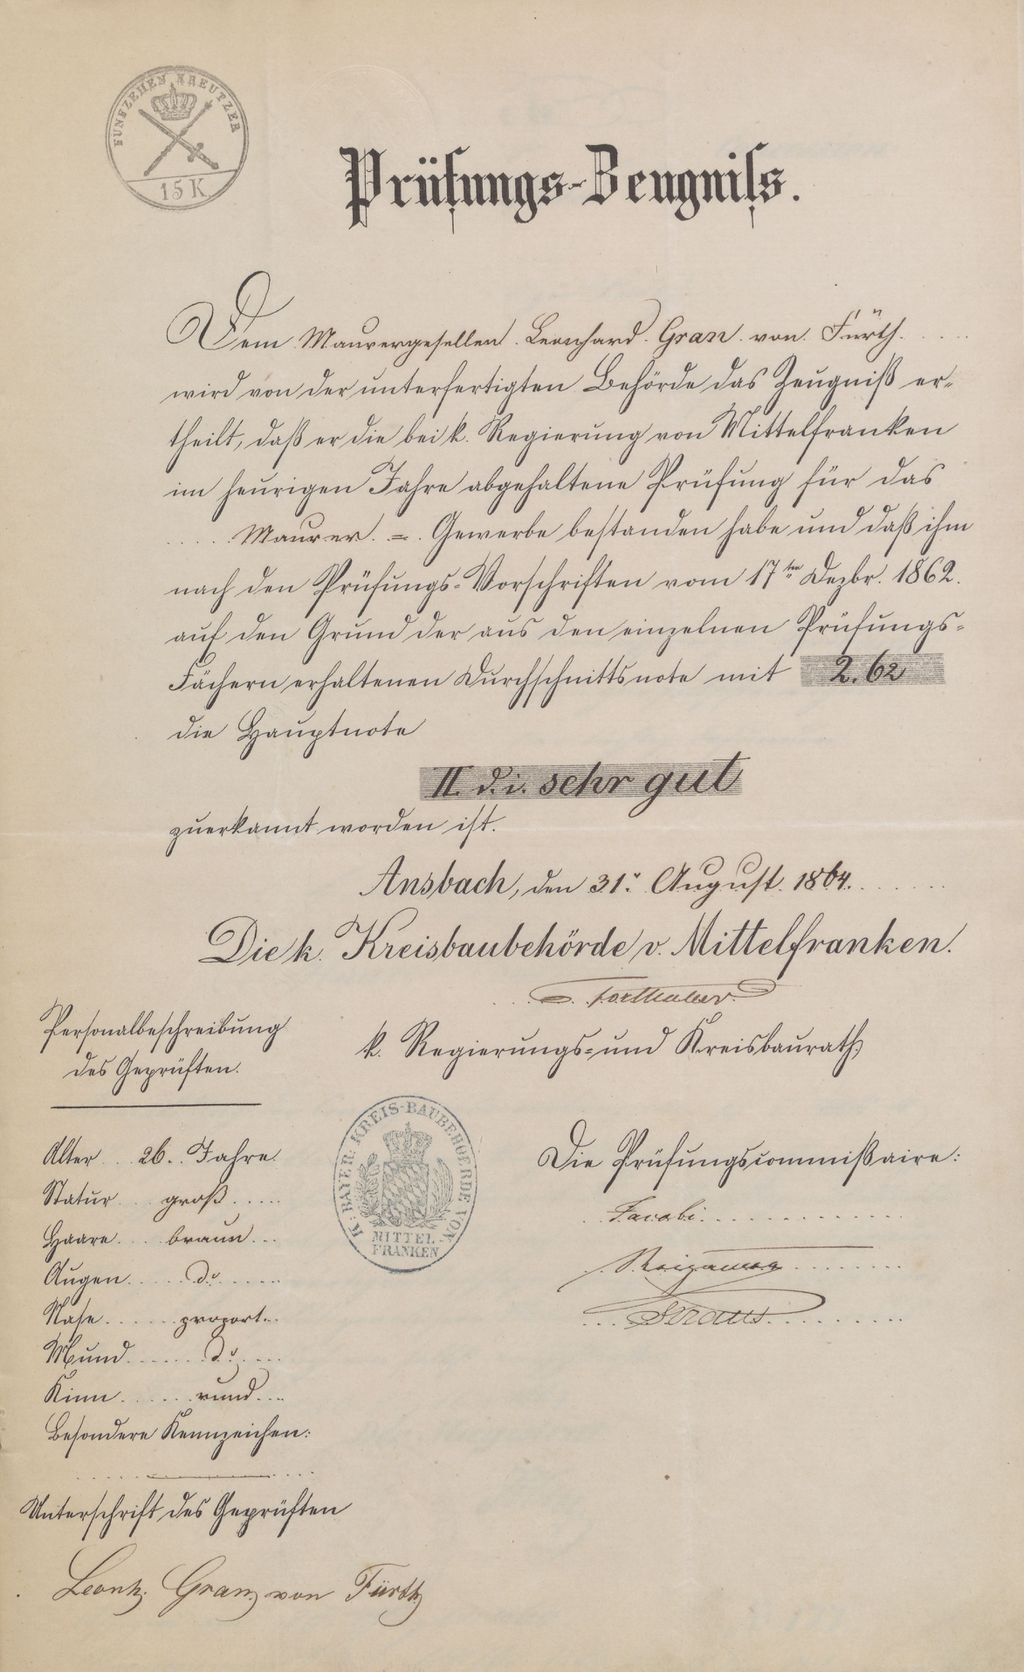 FÜNFZEHEN KREUTZER
15 K
Prüfungs-Zeugniss.
Dem Maurergesellen Leonhard Gran von Fürth
wird von der unterfertigten Behörde das Zeugniß er-
theilt, daß er die bei k. Regierung von Mittelfranken
im heurigen Jahre abgehaltene Prüfung für das
Maurer = Gewerbe bestanden habe und daß ihm
nach den Prüfungs-Vorschriften vom 17ten Dezbr. 1862.
auf den Grund der aus den einzelnen Prüfungs-
Fächern erhaltenen Durchschnittsnote mit 2.62
die Hauptnote
II. d. i. sehr gut
zuerkannt worden ist.
Ansbach, den 31. August 1864.
Die k. Kreisbaubehörde v. Mittelfranken.
k. Regierungs- und Kreisbaurath.
Personalbeschreibung
des Geprüften.
Alter 26. Jahre
Statur groß
Haare braun
Augen do
Nase proport.
Mund do
Kinn rund
Besondere Kennzeichen:
K. BAYER. KREIS-BAUBEHOERDE VON
MITTEL-
FRANKEN
Die Prüfungscommißaire:
Jacobi
Unterschrift des Geprüften
Leonh. Gran von Fürth